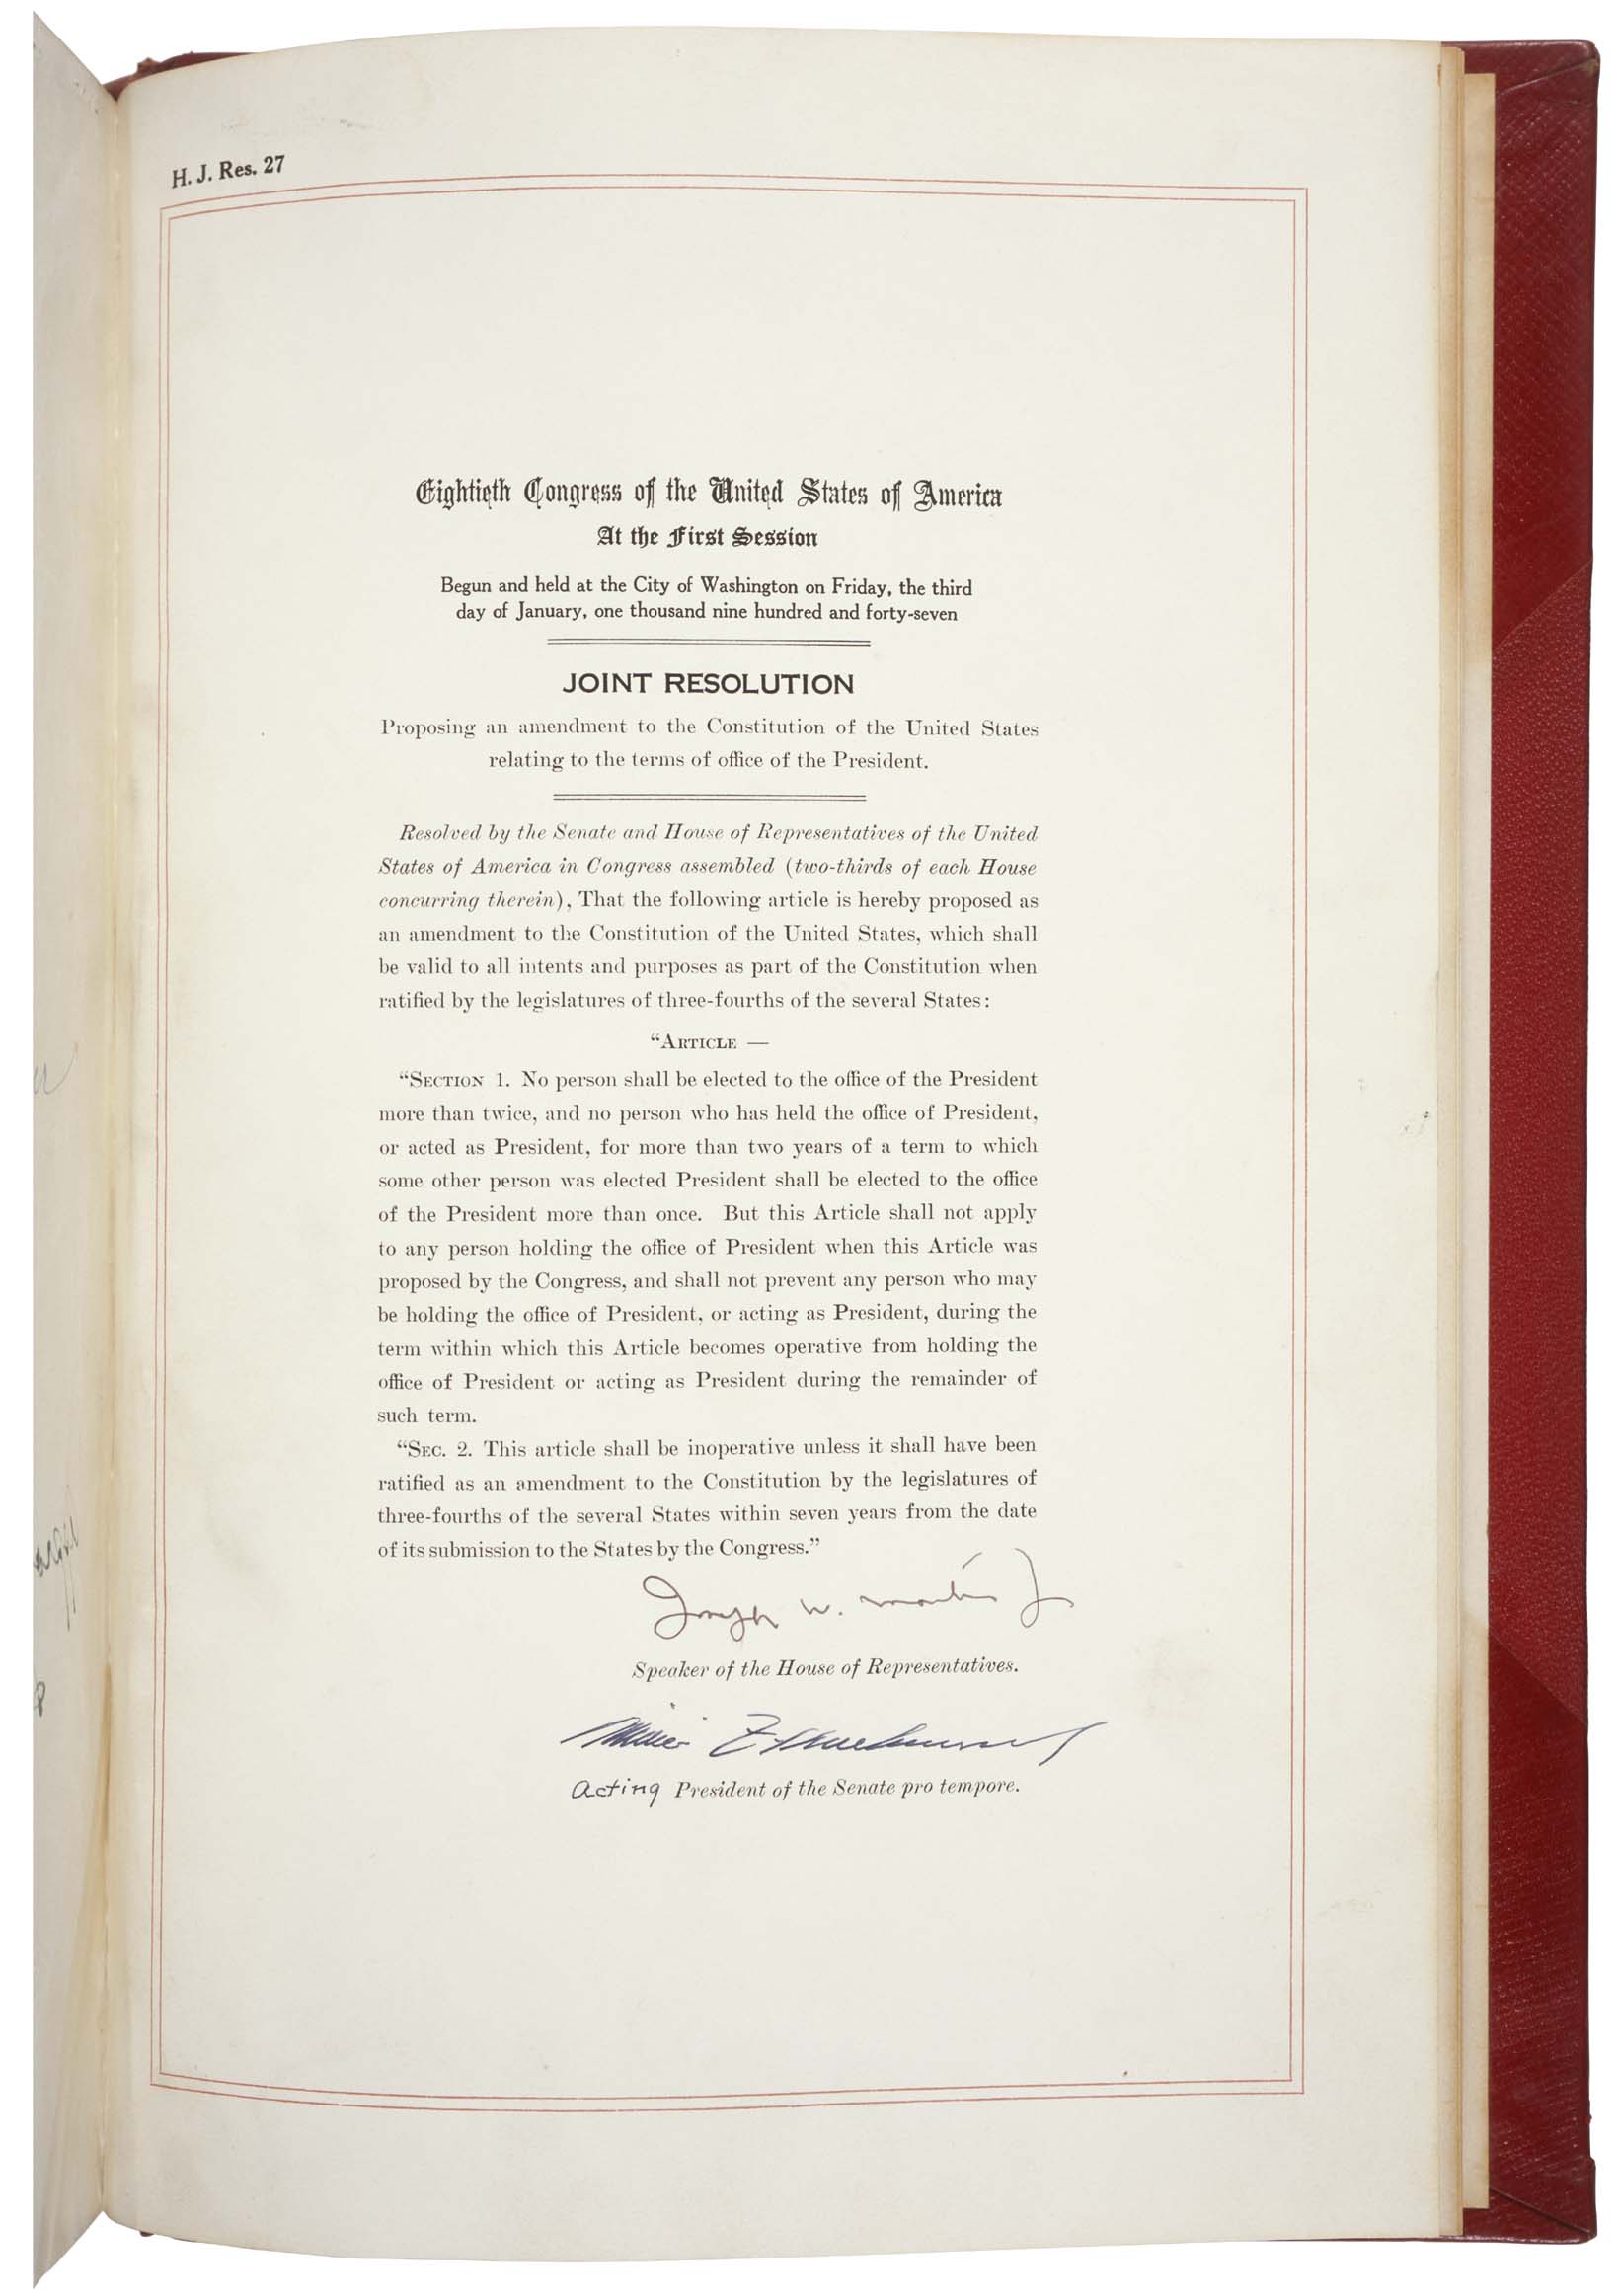 H. J. Res. 27
Eightieth Congress of the United States of America
At the First Session
Begun and held at the City of Washington on Friday, the third
day of January, one thousand nine hundred and forty-seven
JOINT RESOLUTION
Proposing an amendment to the Constitution of the United States
relating to the terms of office of the President.
Resolved by the Senate and House of Representatives of the United
States of America in Congress assembled (two-thirds of each House
concurring therein), That the following article is hereby proposed as
an amendment to the Constitution of the United States, which shall
be valid to all intents and purposes as part of the Constitution when
ratified by the legislatures of three-fourths of the several States:
“ARTICLE —
“SECTION 1. No person shall be elected to the office of the President
more than twice, and no person who has held the office of President,
or acted as President, for more than two years of a term to which
some other person was elected President shall be elected to the office
of the President more than once. But this Article shall not apply
to any person holding the office of President when this Article was
proposed by the Congress, and shall not prevent any person who may
be holding the office of President, or acting as President, during the
term within which this Article becomes operative from holding the
office of President or acting as President during the remainder of
such term.
“SEC. 2. This article shall be inoperative unless it shall have been
ratified as an amendment to the Constitution by the legislatures of
three-fourths of the several States within seven years from the date
of its submission to the States by the Congress.”
Joseph W. Martin Jr
Speaker of the House of Representatives.
Acting President of the Senate pro tempore.